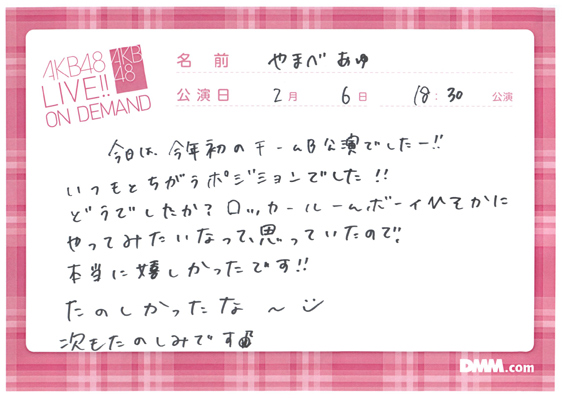 AKB48
LIVE!!
ON DEMAND
AKB
48
名前 やまべ あゆ
公演日 2月 6日 18:30 公演
今日は、今年初のチームB公演でしたー!!
いつもとちがうポジションでした!!
どうでしたか?ロッカールームボーイひそかに
やってみたいなって、思っていたので!
本当に嬉しかったです!!
たのしかったな〜
次もたのしみです
DMM.com